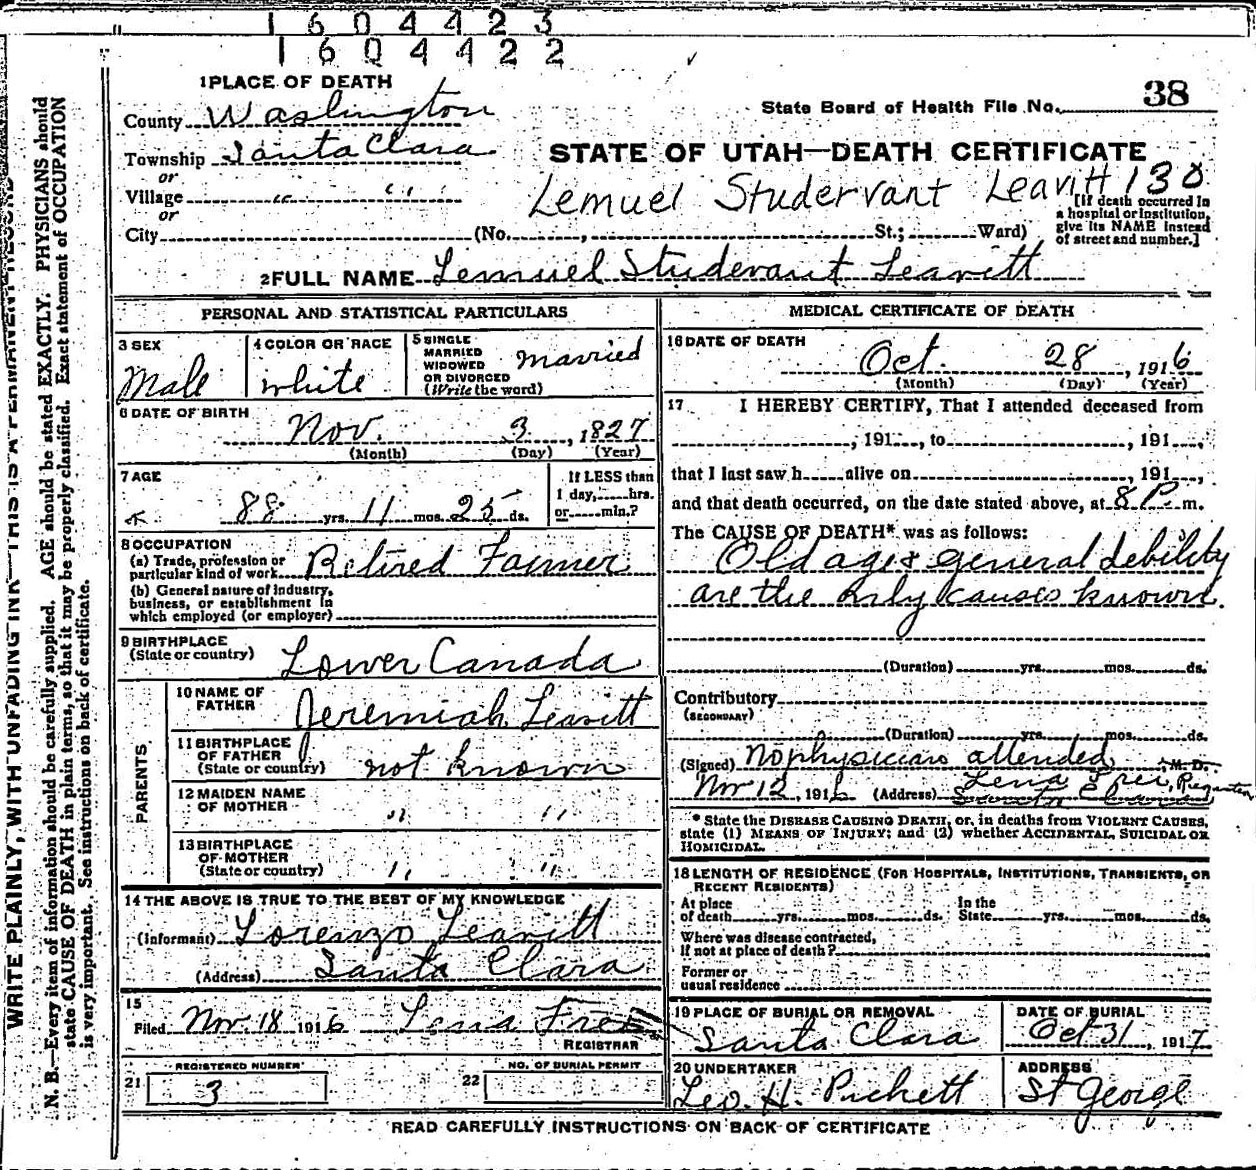 1604423
1604422
1 PLACE OF DEATH
County Washington
State Board of Health File No. 38
Township Santa Clara
or
STATE OF UTAH—DEATH CERTIFICATE
Village " "
or
Lemuel Studervant Leavitt 130
[If death occurred in a hospital or institution, give its NAME instead of street and number.]
City (No. , St.; Ward)
2 FULL NAME Lemuel Studevant Leavitt
PERSONAL AND STATISTICAL PARTICULARS
3 SEX
Male
4 COLOR OR RACE
White
5 SINGLE
MARRIED
WIDOWED
OR DIVORCED
(Write the word)
married
6 DATE OF BIRTH
Nov. 3, 1827
(Month) (Day) (Year)
7 AGE
88 yrs. 11 mos. 25 ds.
If LESS than
1 day, hrs.
or min.?
8 OCCUPATION
(a) Trade, profession or
particular kind of work Retired Farmer
(b) General nature of industry,
business, or establishment in
which employed (or employer)
9 BIRTHPLACE
(State or country) Lower Canada
PARENTS
10 NAME OF
FATHER Jeremiah Leavitt
11 BIRTHPLACE
OF FATHER
(State or country) not known
12 MAIDEN NAME
OF MOTHER " "
13 BIRTHPLACE
OF MOTHER
(State or country) " "
14 THE ABOVE IS TRUE TO THE BEST OF MY KNOWLEDGE
(Informant) Lorenzo Leavitt
(Address) Santa Clara
15
Filed Nov. 18 1916 Lena Frei
REGISTRAR
REGISTERED NUMBER
21 3
NO. OF BURIAL PERMIT
22
MEDICAL CERTIFICATE OF DEATH
16 DATE OF DEATH
Oct. 28, 1916
(Month) (Day) (Year)
17 I HEREBY CERTIFY, That I attended deceased from
, 191 , to , 191 ,
that I last saw h alive on , 191 ,
and that death occurred, on the date stated above, at 8 P. m.
The CAUSE OF DEATH* was as follows:
Old age & general debility
are the only causes known.
(Duration) yrs. mos. ds.
Contributory
(SECONDARY)
(Duration) yrs. mos. ds.
(Signed) No physician attended M. D.
Nov 12, 1916 (Address) Lena Frei,
Santa Clara
* State the DISEASE CAUSING DEATH, or, in deaths from VIOLENT CAUSES,
state (1) MEANS OF INJURY; and (2) whether ACCIDENTAL, SUICIDAL OR
HOMICIDAL.
18 LENGTH OF RESIDENCE (FOR HOSPITALS, INSTITUTIONS, TRANSIENTS, OR
RECENT RESIDENTS)
At place In the
of death yrs. mos. ds. State yrs. mos. ds.
Where was disease contracted,
if not at place of death?
Former or
usual residence
19 PLACE OF BURIAL OR REMOVAL
Santa Clara
DATE OF BURIAL
Oct 31, 1917
20 UNDERTAKER
Leo. H. Pickett
ADDRESS
St George
READ CAREFULLY INSTRUCTIONS ON BACK OF CERTIFICATE
WRITE PLAINLY, WITH UNFADING INK—THIS IS A PERMANENT RECORD
N. B.—Every item of information should be carefully supplied. AGE should be stated EXACTLY. PHYSICIANS should
state CAUSE OF DEATH in plain terms, so that it may be properly classified. Exact statement of OCCUPATION
is very important. See instructions on back of certificate.